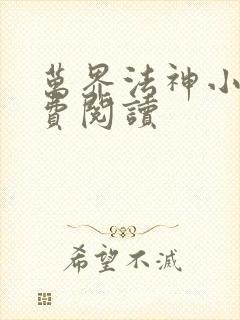 萬界法神小
費閱讀
希望不滅